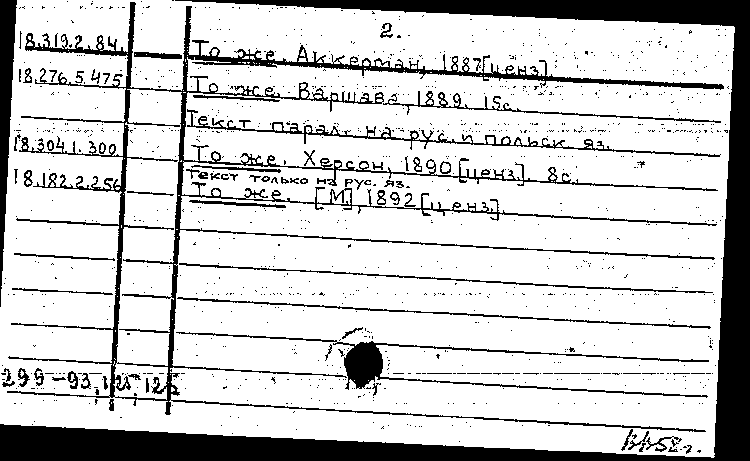 2.
18.319.2.84. То же. Аккерман, 1887[ценз].
18.276.5.475 То же. Варшава, 1889. 15с.
Текст парал. на рус. и польск яз.
18.304.1.300 То же. Херсон, 1890[ценз]. 8с.
Текст только на рус. яз.
18.182.2.256 То же. [М], 1892[ценз].
299-93,125,125